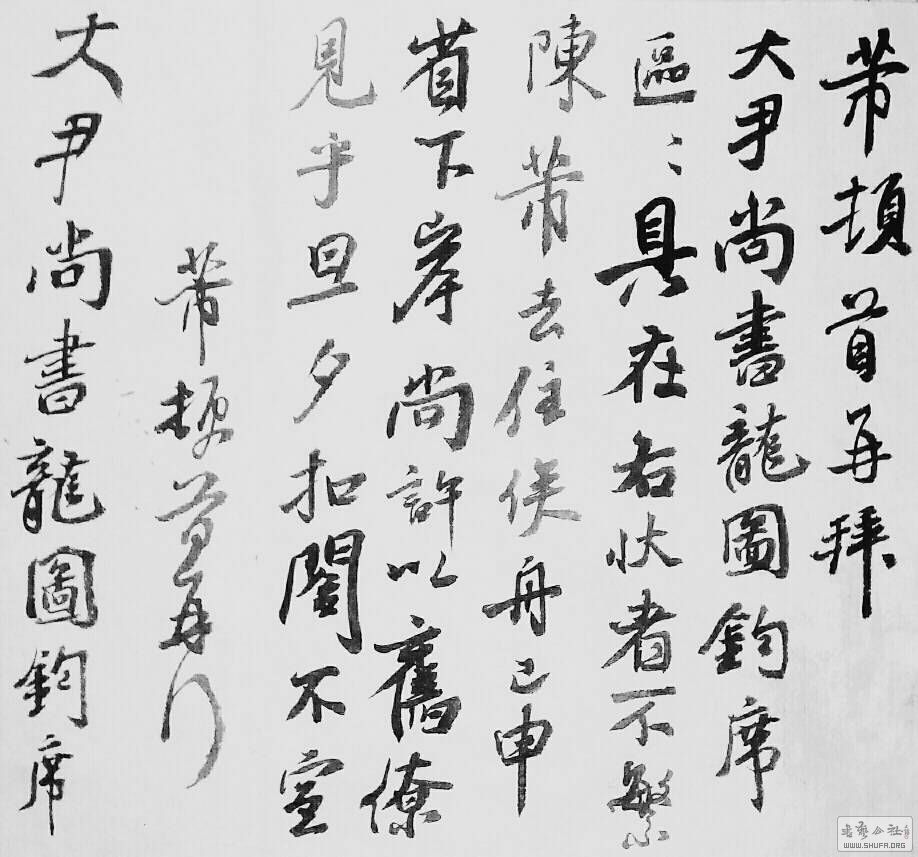 芾頓首再拜
大尹尚書龍圖鈞席
區〻具在右狀者不繁
陳芾去住俟舟已申
省下岸尚許以舊僚
見乎旦夕扣閤不宣
芾頓首再行
大尹尚書龍圖鈞席
書藝公社
WWW.SHUFA.ORG